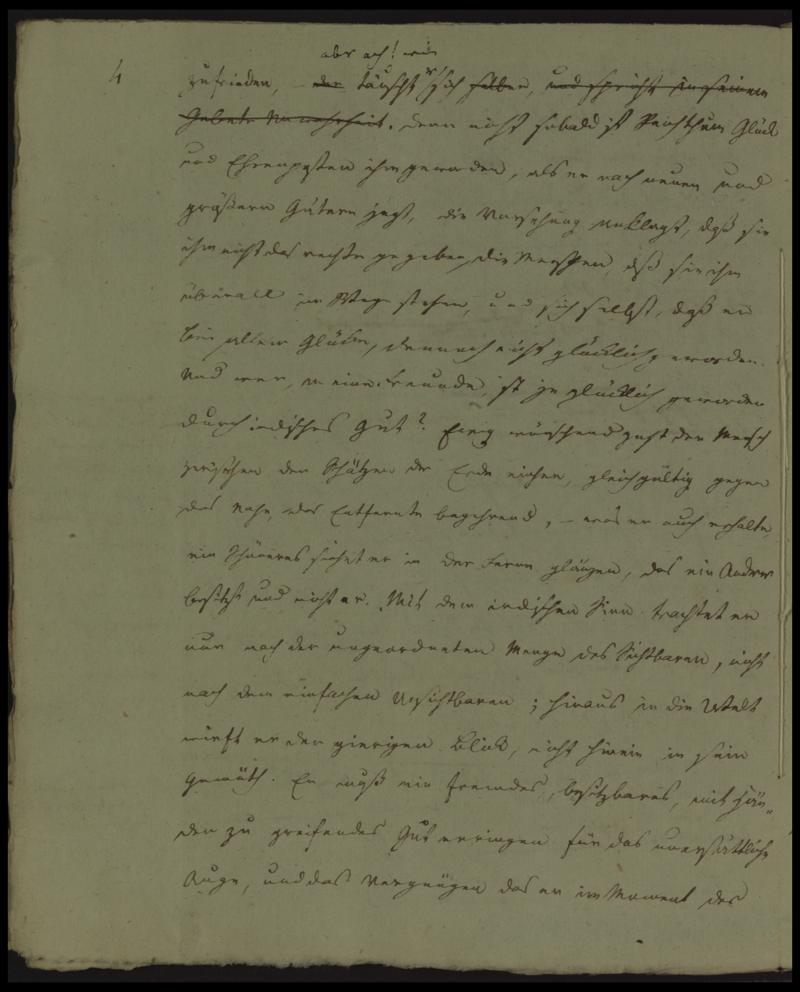 4
aber ach! wie
zufrieden, – der täuscht er sich selber, und spricht in seinem
Gebete Unwahrheit. denn nicht sobald ist Reichthum Glück
und Ehrenposten ihm geworden, als er nach neuen und
größern Gütern jagt, die Vorsehung anklagt, daß sie
ihm nicht das rechte gegeben, die Menschen, daß sie ihm
überall im Wege stehen, und sich selbst, daß er
bei allem Glücke, dennoch nicht glücklich geworden.
Und wer, meine Freunde, ist je glücklich geworden
durch irdisches Gut? Ewig wünschend geht der Mensch
zwischen den Schätzen der Erde einher, gleichgültig gegen
das Nahe, das Entfernte begehrend, – was er auch erhalte,
ein Schöneres siehet er in der Ferne glänzen, das ein Andrer
besitzt und nicht er. Mit dem irdischen Sinn trachtet er
nur nach der ungeordneten Menge des Sichtbaren, nicht
nach dem einfachen Unsichtbaren; hinaus in die Welt
wirft er den gierigen Blick, nicht hinein in sein
Gemüth. Er muß ein fremdes, besitzbares, mit Hän„
den zu greifendes Gut erringen für das unersättliche
Auge, und das Vergnügen das er im Moment des